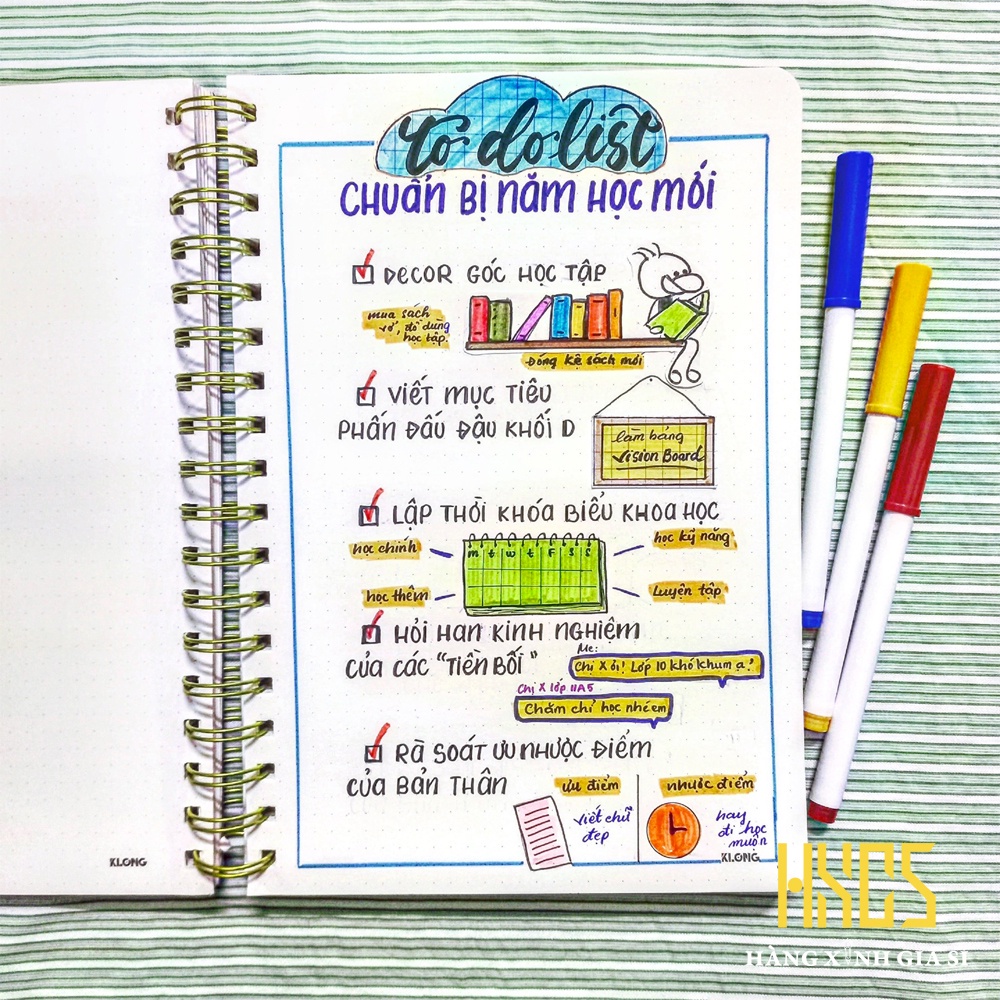 to do list
CHUẨN BỊ NĂM HỌC MỚI
DECOR GÓC HỌC TẬP
mua sách
vở, đồ dùng
học tập.
Đóng kệ sách mới
VIẾT MỤC TIÊU
PHẤN ĐẤU ĐẬU KHỐI D
làm bảng
Vision Board
LẬP THỜI KHÓA BIỂU KHOA HỌC
học chính
học kỹ năng
m t w t F S S
học thêm
Luyện tập
HỎI HAN KINH NGHIỆM
CỦA CÁC "TIỀN BỐI"
Me:
Chị X ơi! Lớp 10 khó khum ạ?
Chị X lớp 11A5
Chăm chỉ học nhé em
RÀ SOÁT ƯU NHƯỢC ĐIỂM
CỦA BẢN THÂN
ưu điểm
nhược điểm
viết chữ
đẹp
hay
đi học
muộn
KLONG
KLONG
HXGS
HÀNG XỊNH GIÁ SỈ